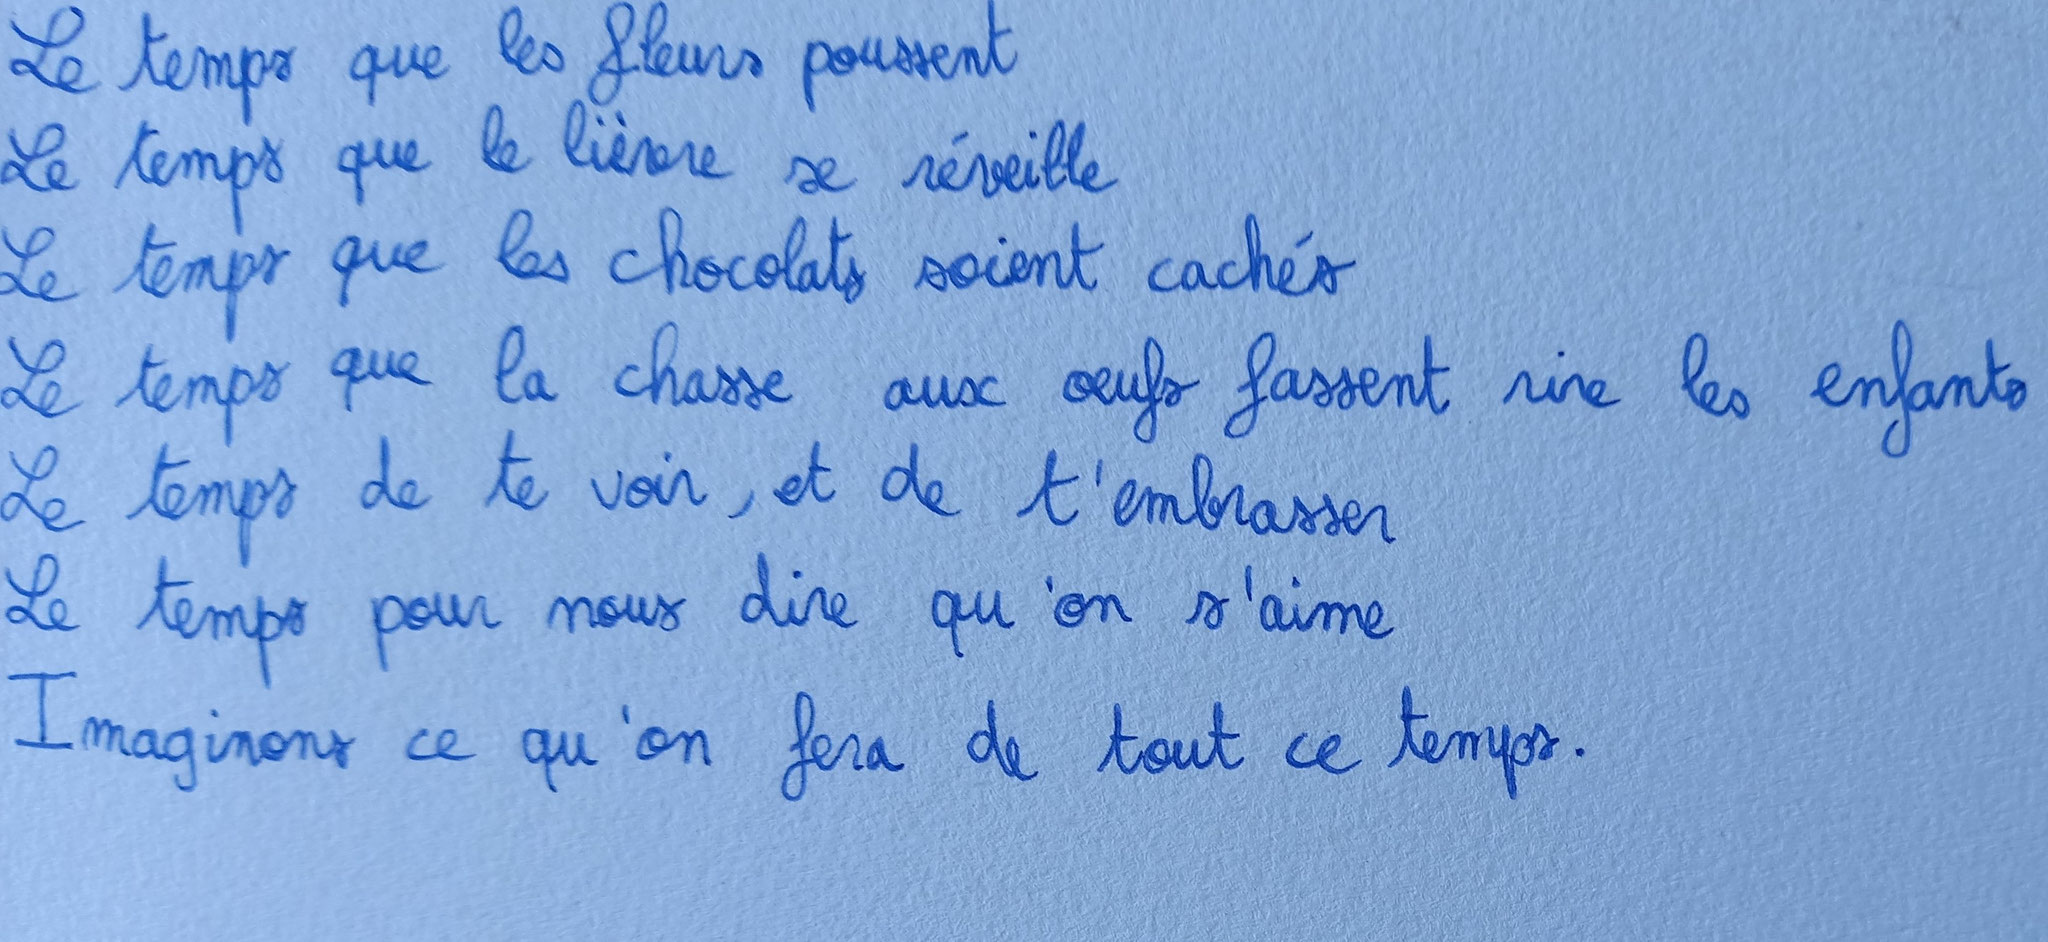 Le temps que les fleurs poussent
Le temps que le lièvre se réveille
Le temps que les chocolats soient cachés
Le temps que la chasse aux œufs fassent rire les enfants
Le temps de te voir, et de t'embrasser
Le temps pour nous dire qu'on s'aime
Imaginons ce qu'on fera de tout ce temps.